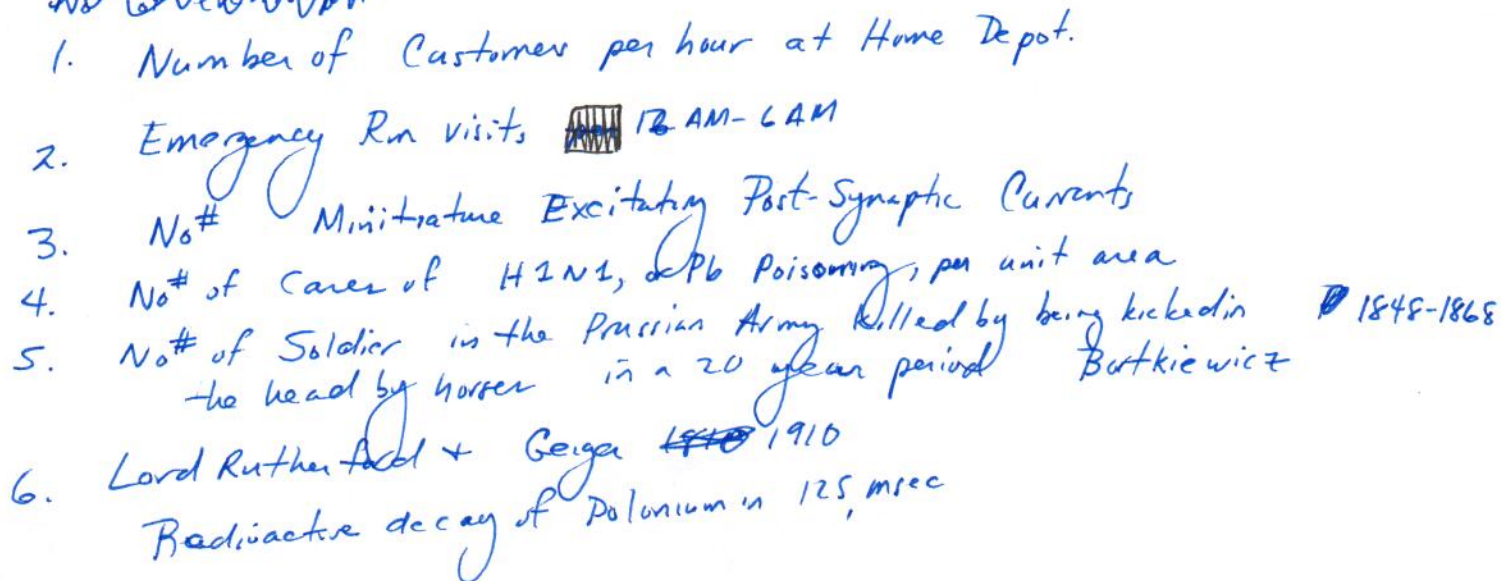 No
1. Number of Customers per hour at Home Depot.
2. Emergency Rm visits 12 AM-6AM
3. No# Minitrature Excitatory Post-Synaptic Currents
4. No# of Cases of H1N1, Pb Poisoning, per unit area
5. No# of Soldier in the Prussian Army killed by being kicked in 1848-1868
the head by horses in a 20 year period Bortkiewicz
6. Lord Rutherford + Geiger 1910
Radioactive decay of Polonium in 125 msec